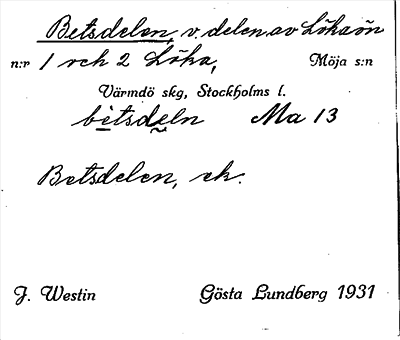 Betsdelen, v. delen av Löknön
n:r 1 och 2 Löka, Möja s:n
Värmdö skg, Stockholms l.
bètsdeln Ma 13
Betsdelen, ek.
J. Westin Gösta Lundberg 1931